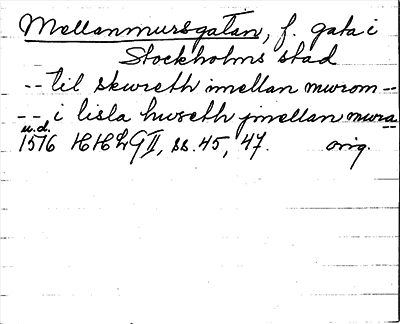 Mellanmursgatan, f. gata i
Stockholms stad
-- til skureth imellan murom --
-- i lisla huseth jmellan mura
u.d.
1576 HHLG II, ss. 45, 47. orig.